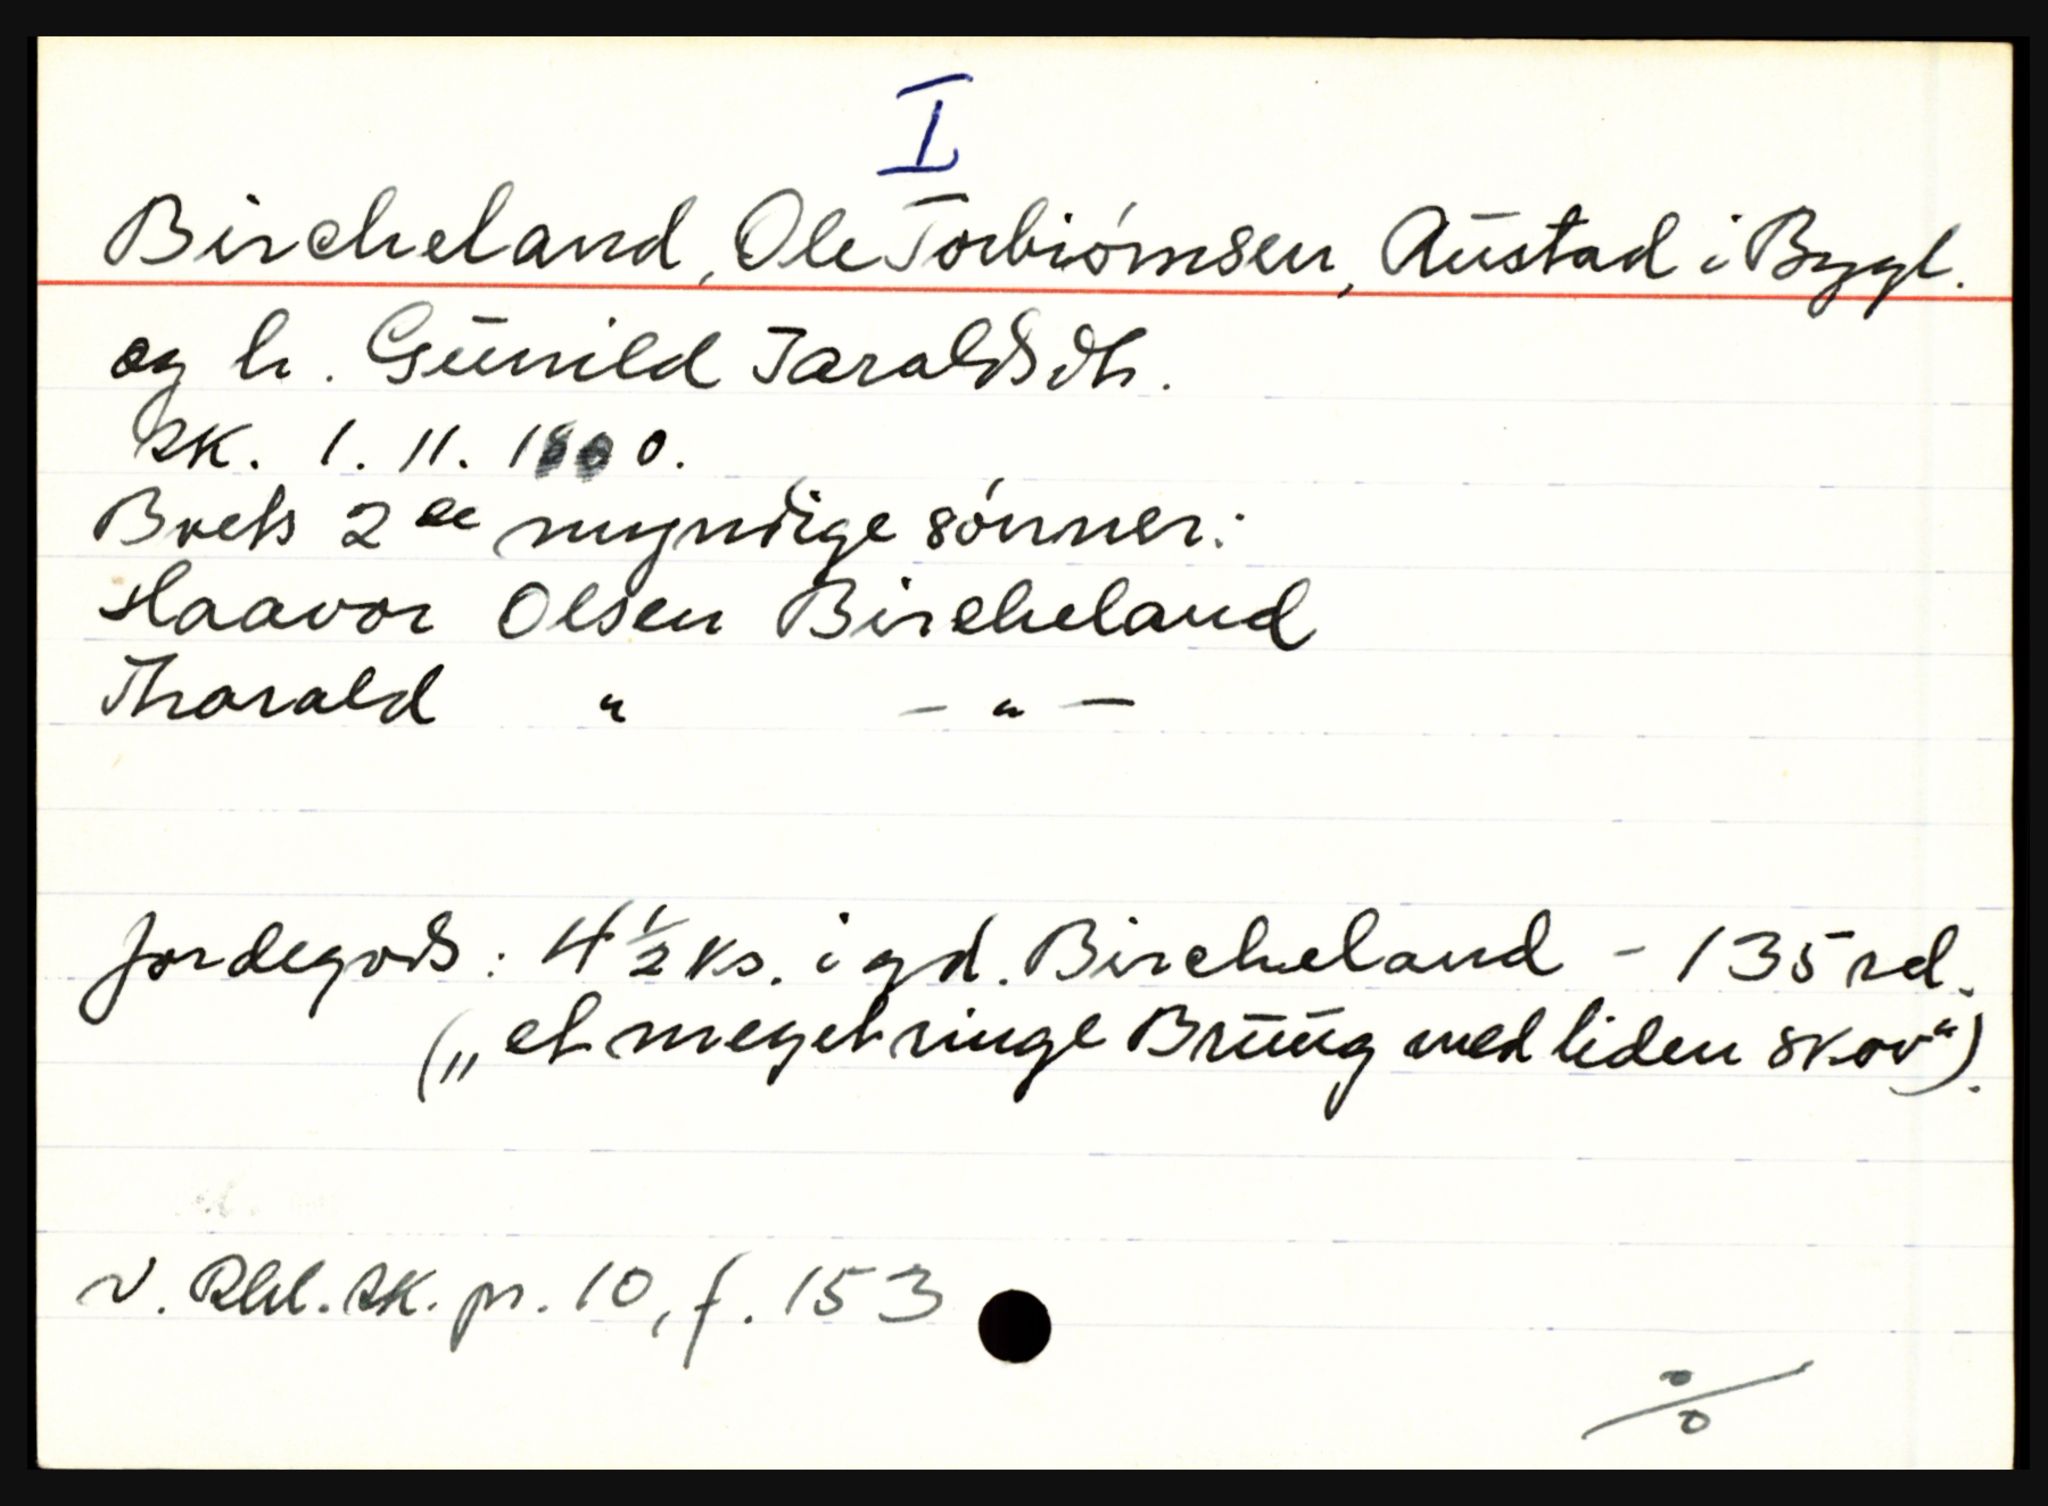 I
Bircheland, Ole Torbiørnsen, Austad i Bygl.
og h. Gunild Taraldsdtr.
sk. 1. 11. 1800.
Brets 2de myndige sønner:
Haavor Olsen Bircheland
Tharald " - " -
Jordegods: 4 1/2 ks. i gd. Bircheland - 135 rd.
(„et meget ringe Bruug med liden skov“).
V. Rbl. sk. pr. 10, f. 153
%